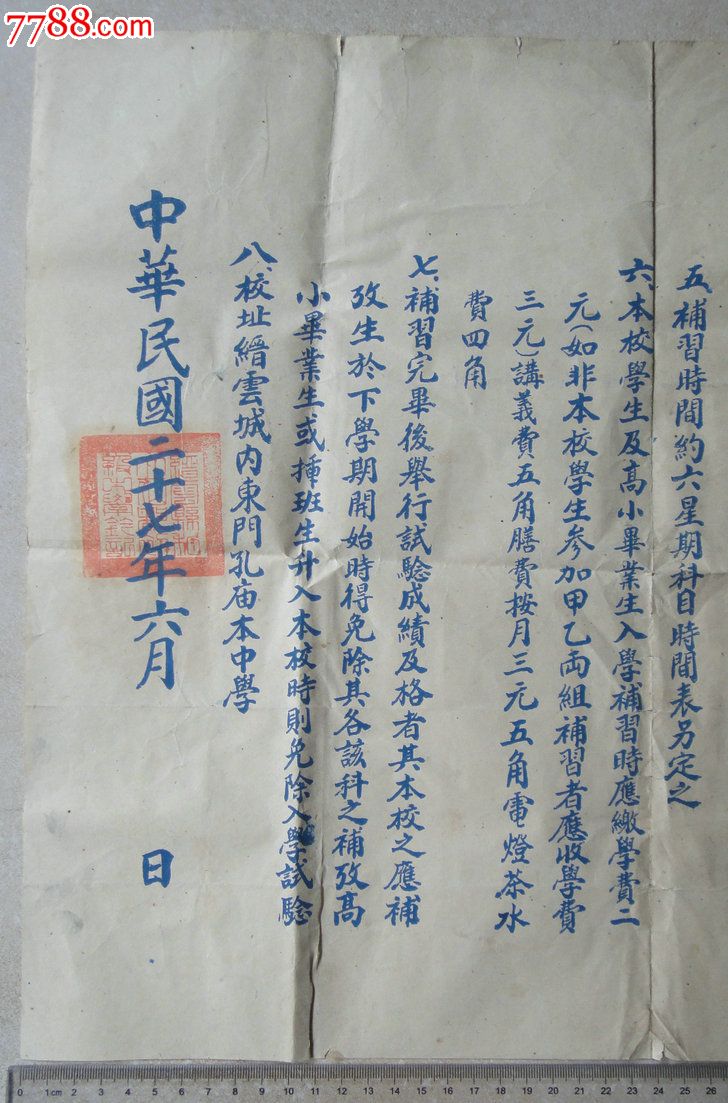 7788.com
五、補習時間約六星期科目時間表另定之
六、本校學生及高小畢業生入學補習時應繳學費二
元（如非本校學生參加甲乙両組補習者應收學費
三元）講義費五角膳費按月三元五角電燈茶水
費四角
七、補習完畢後舉行試驗成績及格者其本校之應補
攷生於下學期開始時得免除其各該科之補攷高
小畢業生或揷班生升入本校時則免除入學試驗
八、校址縉雲城内東門孔庙本中學
中華民國二十七年六月 日
0 1cm 2 3 4 5 6 7 8 9 10 11 12 13 14 15 16 17 18 19 20 21 22 23 24 25 26